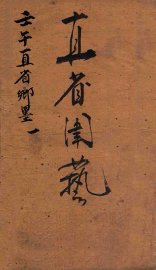 壬午直省鄉墨一
直省闈藝